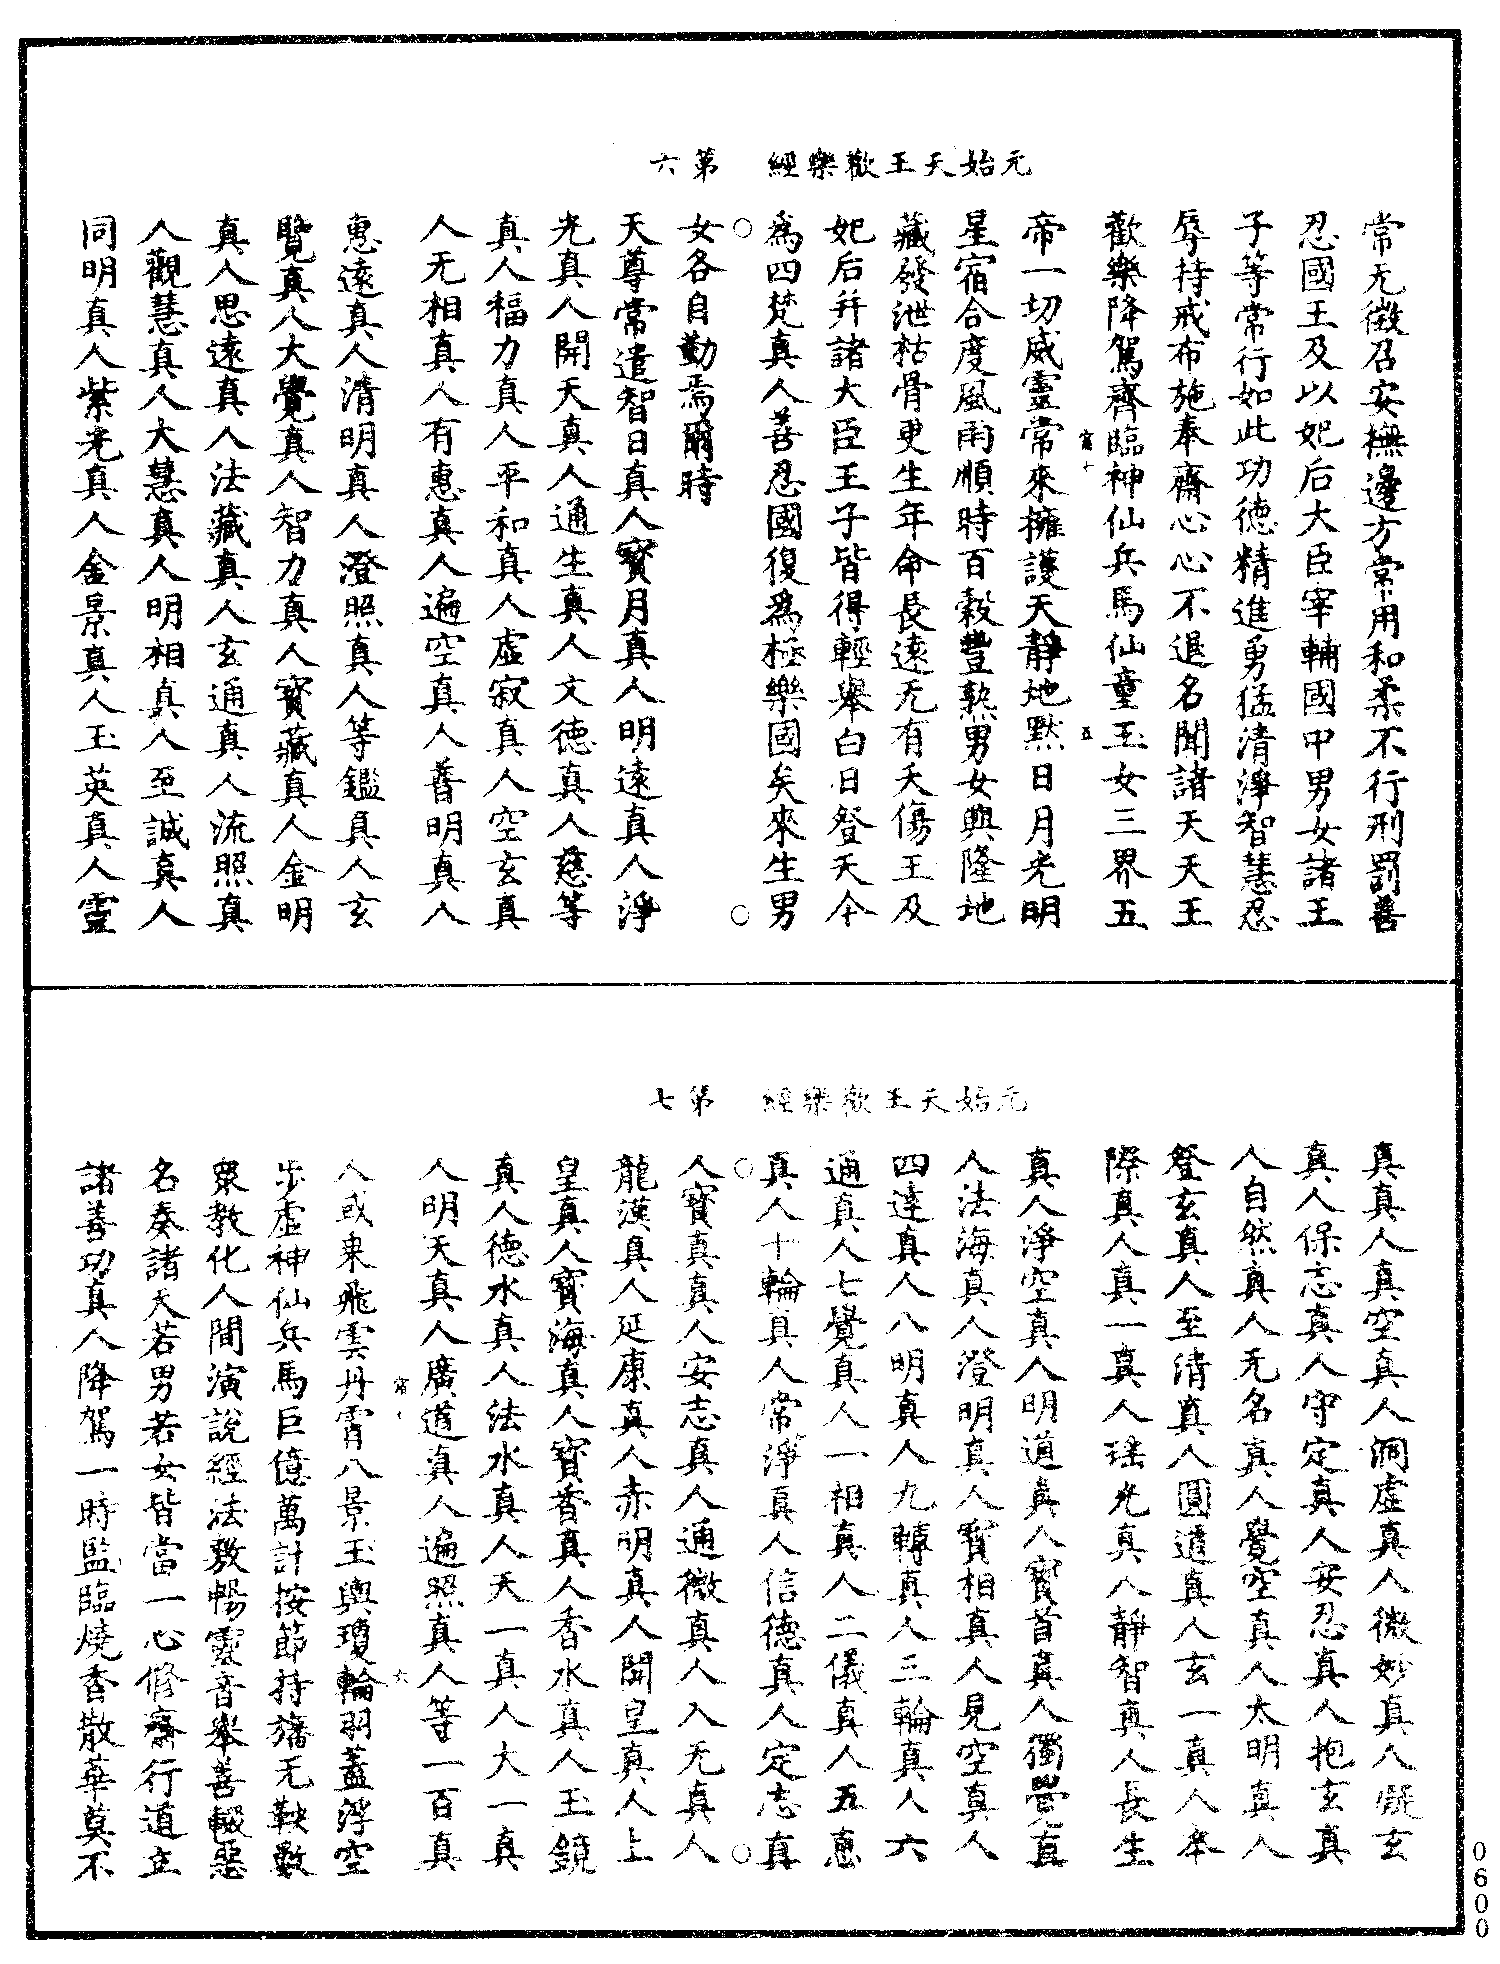 元始天王歡樂經　第六
常无徵召安撫邊方常用和柔不行刑罰善
忍國王及以妃后大臣宰輔國中男女諸王
子等常行如此功德精進勇猛清淨智慧忍
辱持戒布施奉齋心心不退名聞諸天天王
歡樂降駕齊臨神仙兵馬仙童玉女三界五
帝一切威靈常來擁護天靜地默日月光明
星宿合度風雨順時百穀豐熟男女興隆地
藏發泄枯骨更生年命長遠无有夭傷王及
妃后并諸大臣王子皆得輕舉白日登天今
為四梵真人善忍國復為極樂國矣來生男
女各自勤焉爾時
天尊常遣智日真人寶月真人明遠真人淨
光真人開天真人通生真人文德真人慈等
真人福力真人平和真人虛寂真人空玄真
人无相真人有惠真人遍空真人普明真人
惠遠真人清明真人澄照真人等鑑真人玄
覽真人大覺真人智力真人寶藏真人金明
真人思遠真人法藏真人玄通真人流照真
人觀慧真人大慧真人明相真人至誠真人
同明真人紫光真人金景真人玉英真人靈
元始天王歡樂經　第七
真真人真空真人洞虛真人微妙真人凝玄
真人保志真人守定真人安忍真人抱玄真
人自然真人无名真人覺空真人太明真人
登玄真人至清真人圓通真人玄一真人本
際真人真一真人瑤光真人靜智真人長生
真人淨空真人明道真人寶首真人獨覺真
人法海真人澄明真人寶相真人見空真人
四達真人八明真人九轉真人三輪真人六
通真人七覺真人一相真人二儀真人五惠
真人十輪真人常淨真人信德真人定志真
人寶真真人安志真人通微真人入无真人
龍漢真人延康真人赤明真人開皇真人上
皇真人寶海真人寶香真人香水真人玉鏡
真人德水真人法水真人天一真人大一真
人明天真人廣道真人遍照真人等一百真
人或乘飛雲丹霄八景玉輿瓊輪羽蓋浮空
步虛神仙兵馬巨億萬計按節持旛无鞅數
眾教化人間演說經法敷暢靈音舉善輟惡
名奏諸天若男若女皆當一心修齋行道立
諸善功真人降駕一時監臨燒香散華莫不
0600